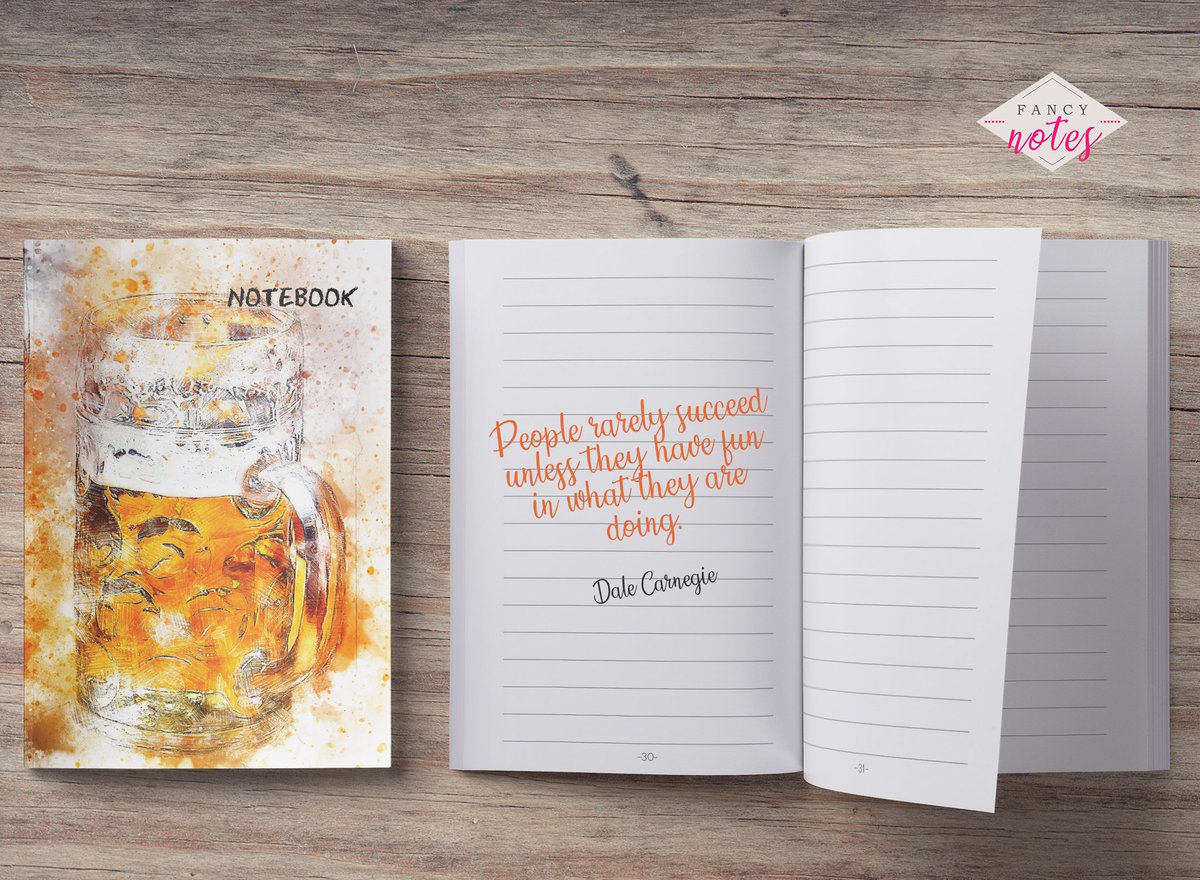 FANCY
notes
NOTEBOOK
People rarely succeed
unless they have fun
in what they are
doing.
Dale Carnegie
-30-
-31-